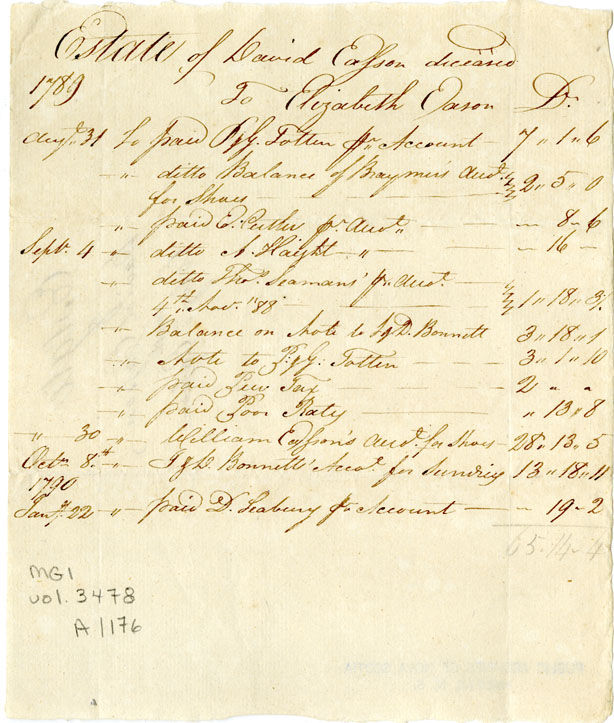 Estate of David Easson deceased
1789 To Elizabeth Eason Dr.
Augt. 31 to paid P&J. Totten pr. Account — 7 " 1 " 6
" ditto Ballance of Raymer's Audt.
for Shoes — 2 " 5 " 0
" paid E. Cutler pr. Audt. " — " 8 - 6
Sept. 4 " ditto A Haight " — " 16 —
" ditto Thos. Seamans' pr. Audt. —
4th. Novr. '88 — 1 " 18 " 3
" Balance on Note to J&D. Bonnett 3 " 18 " 1
" Note to P&J. Totten 3 " 1 " 10
" paid Pew Tax — 2 " "
" paid Poor Rates — " 13 " 8
" 30 " William Easson's Audt. for Shoes — 28 " 13 " 5
Octr. 8th " J&D. Bonnett's Accot. for Sundries 13 " 18 " 11
1790
Jany. 22 " paid D. Seabury pr Account — " 19 - 2
65 - 14 - 4
MG1
vol. 3478
A/176